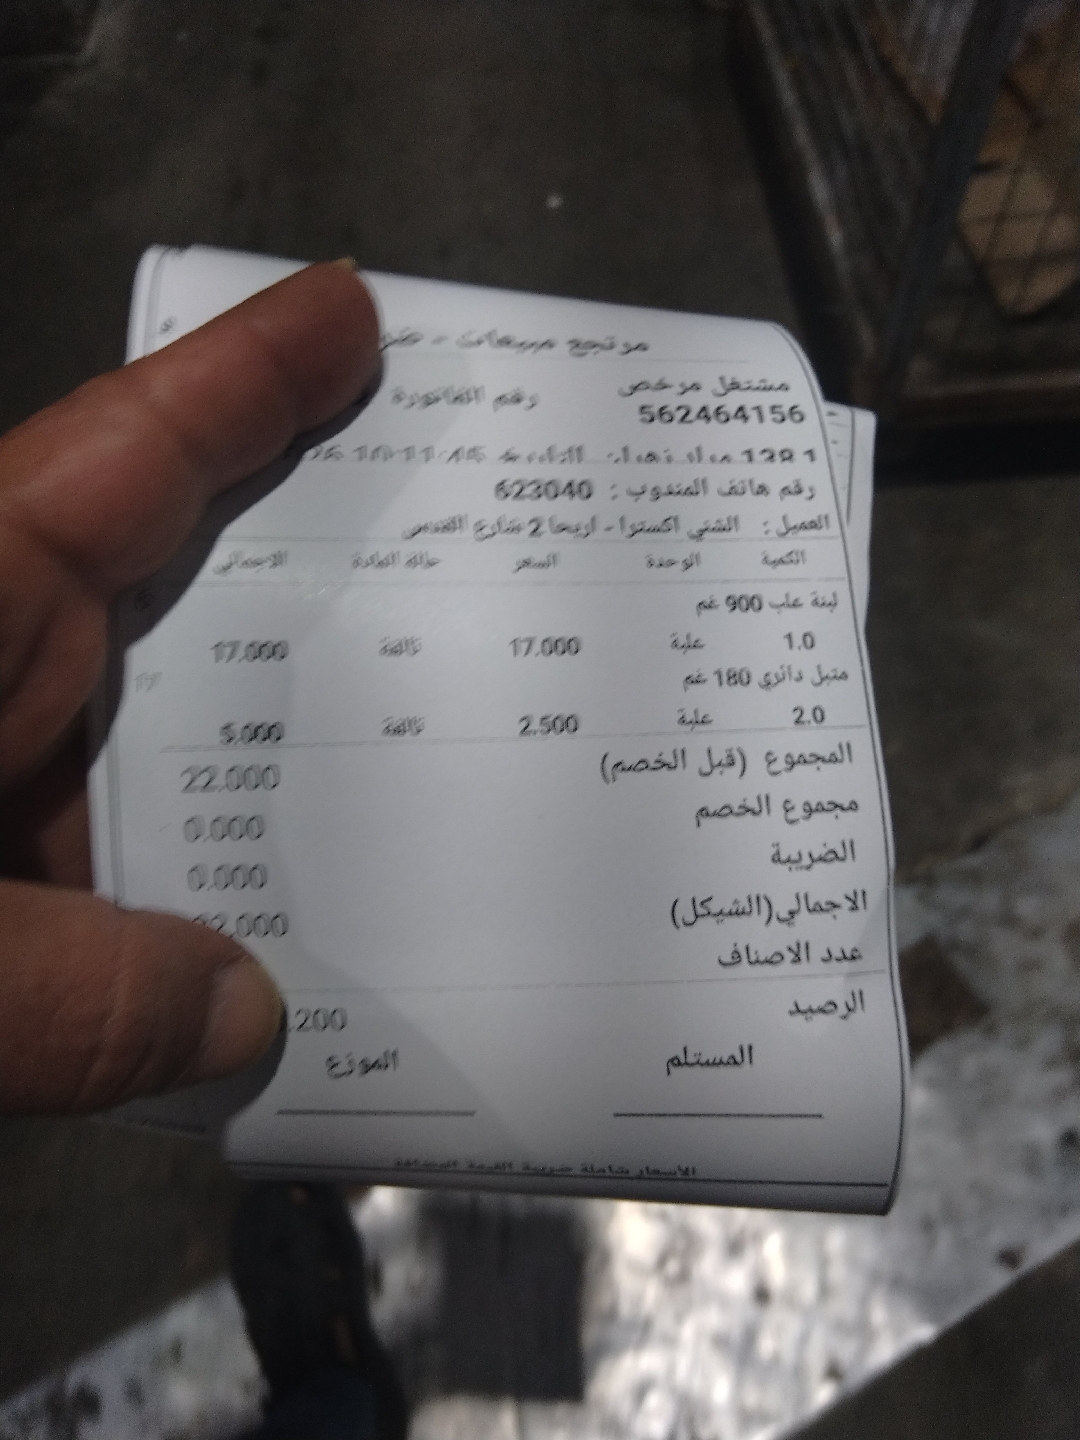 مرتجع مبيعات -
مشتغل مرخص رقم الفاتورة
562464156
رقم هاتف المندوب : 623040
العميل : الشني اكسترا - اريحا 2 شارع القدس
الكمية الوحدة السعر حالة المادة الاجمالي
لبنة علب 900 غم
1.0 علبة 17.000 تالفة 17.000
متبل دائري 180 غم
2.0 علبة 2.500 تالفة 5.000
المجموع (قبل الخصم) 22.000
مجموع الخصم 0.000
الضريبة 0.000
الاجمالي(الشيكل) 22.000
عدد الاصناف
الرصيد .200
المستلم الموزع
الأسعار شاملة ضريبة القيمة المضافة